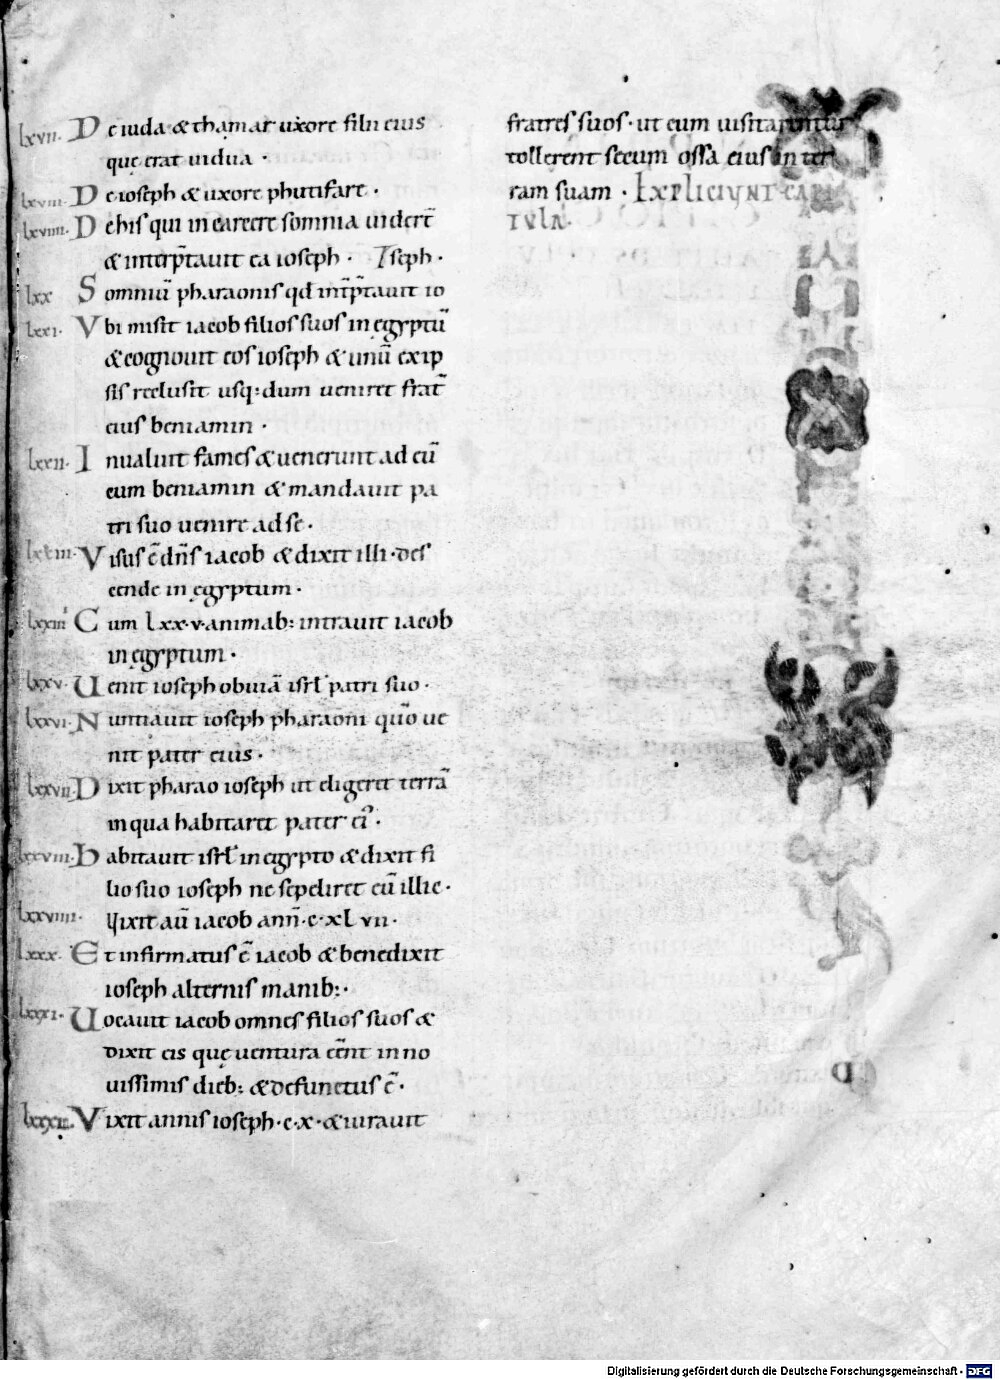 lxvii. De iuda & thamar uxore filii eius
quę erat uidua ·
lxviii. De ioseph & uxore phutifare ·
lxviiii. De his qui in carcere somnia uider̄t
& int̄erp̄tauit ea ioseph · Iseph ·
lxx Somniū pharaonis qđ int̄p̄tauit io
lxxi. Vbi misit iacob filios suos in ęgyptū
& cognouit eos ioseph & unū ex ip
sis reclusit usq: dum ueniret frat̄
eius beniamin ·
lxxii. Inualuit fames & uenerunt ad eū
cum beniamin & mandauit pa
tri suo uenire ad se ·
lxxiii. Visus ē dn̄s iacob & dixit illi · des
cende in ęgyptum ·
lxxiiii Cum lxx·v· animab: intrauit iacob
in ęgyptum ·
lxxv. Uenit ioseph obuiā isrl̄ patri suo ·
lxxvi. Nuntiauit ioseph pharaoni quo͞ ue
nit pater eius ·
lxxvii. Dixit pharao ioseph ut eligeret terrā
in qua habitaret pater ei᾿ ·
lxxviii. Habitauit isrl̄ in egypto & dixit fi
lio suo ioseph ne sepeliret eū illic ·
lxxviiii. Vixit aū iacob ann̄ · c · xl vii ·
lxxx. Et infirmatus ē iacob & benedixit
ioseph alternis manib: ·
lxxxi. Uocauit iacob omnes filios suos &
dixit eis quę uentura eēnt in no
uissimis dieb: & defunctus ē ·
lxxxii. Vixit annis ioseph · c · x · & iurauit
fratres suos · ut cum uisitarentur
tollerent secum ossa eius in ter
ram suam · EXPLICIVNT CAPI
TVLA ·
Digitalisierung gefördert durch die Deutsche Forschungsgemeinschaft · DFG